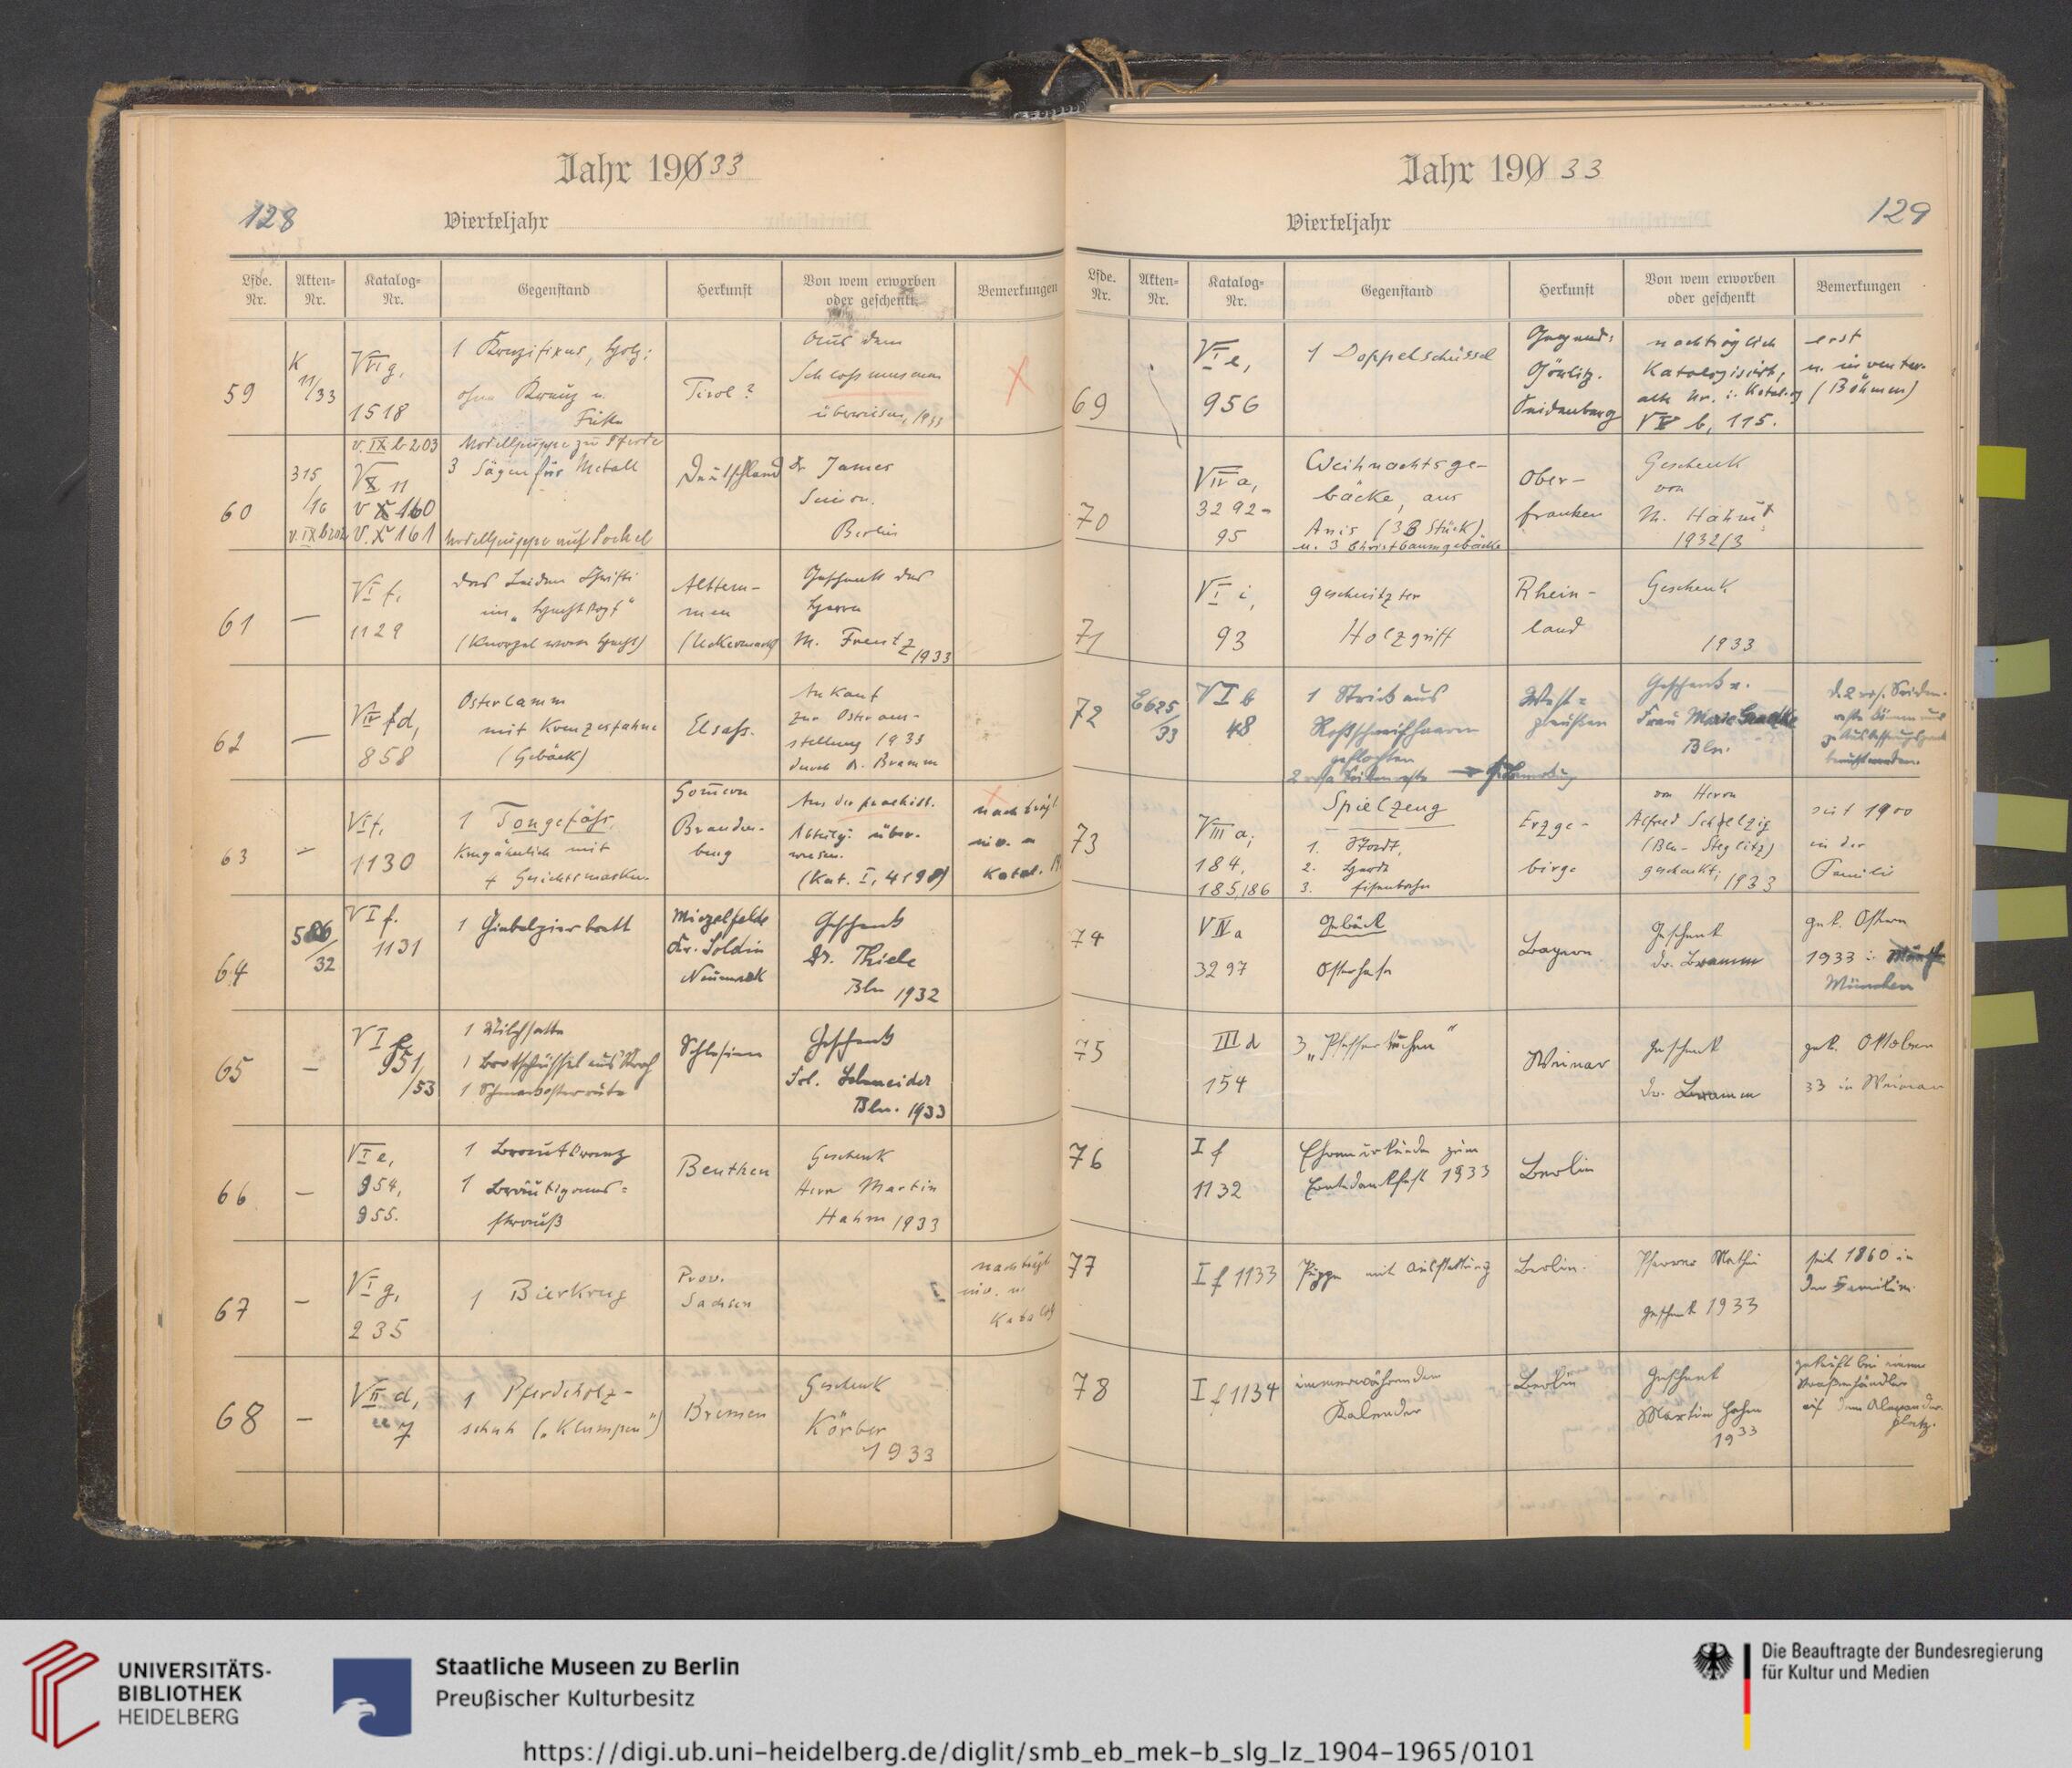 Jahr 190 33
128
Vierteljahr
Lfde. Nr.
Akten-Nr.
Katalog-Nr.
Gegenstand
Herkunft
Von wem erworben oder geschenkt
Bemerkungen
59
K 11/33
VI g,
1518
1 Kruzifixus, Holz;
ohne Kreuz u.
Füße
Tirol ?
Aus dem
Schlossmuseum
überwiesen, 1933
60
315
/16
v. IX b 203
V X 160
V. X 161
Modellpuppe zu Pferde
3 Sägen für Metall
Modellpuppe auf Sockel
Deutschland
Dr James
Simon.
Berlin
61
—
VI f,
1129
das Leiden Christi
im „Hechtkopf"
(Knorpel vom Hecht)
(Uckermark)
Geschenk des
Herrn
M. Frentz 1933
62
—
858
Osterlamm
mit Kreuzesfahne
(Gebäck)
Elsass.
Ankauf
zur Osteraus-
stellung 1933
durch Dr. Bramm
63
–
VI f,
1130
1 Tongefäss,
krugähnlich mit
4 Gesichtsmasken.
Branden-
burg
Aus der praehist.
Abteilg. über-
wiesen.
(Kat. I, 4198)
nachträgl.
inv. u.
Katal.
64
/32
VI f.
1131
1 Giebelzierbrett
Miezelfelde
Kr. Soldin
Neumark
Geschenk
Dr. Thiele
Bln 1932
65
–
VI e
951
/53
1 Milchsatte
1 Brotschüssel aus Stroh
1 Schmackosterrute
Schlesien
Geschenk
Frl. Schneider
Bln. 1933
66
–
VI e,
954,
955.
1 Brautkranz
1 Bräutigams-
strauß
Beuthen
Geschenk
Herr Martin
Hahm 1933
67
–
VI g,
235
1 Bierkrug
Prov.
Sachsen
nachträgl.
inv. u.
Katalog
68
–
VII d,
7
1 Pferdeholz-
schuh („Klumpen")
Bremen
Geschenk
Körber
1933
Jahr 190 33
129
Vierteljahr
Lfde. Nr.
Akten-Nr.
Katalog-Nr.
Gegenstand
Herkunft
Von wem erworben oder geschenkt
Bemerkungen
69
VI e,
956
1 Doppelschüssel
Gegend:
Görlitz.
Seidenberg
nachträglich
Katalogisiert,
alte Nr. i. Katalog
b, 115.
erst
u. inventar.
(Böhmen)
70
3292-
95
Weihnachtsge-
bäcke, aus
Anis (33 Stück)
u. 3 Christbaumgebäcke
Ober-
franken
Geschenk
von
M. Hähm
1932/3
71
VI i,
93
geschnitzter
Holzgriff
Rhein-
land
Geschenk
1933
72
6625
/33
VI b
48
1 Strick aus
Roßschweifhaaren
geflochten
West-
preußen
Geschenk v.
Frau Marie
Bln.
73
VIII a;
184,
185,186
Spielzeug
1. Stadt,
2. Herde
3. Eisenbahn
Erzge-
birge
von Herrn
Alfred Schelzig
(Bln - Steglitz)
geschenkt, 1933
seit 1900
in der
Familie
74
3297
Gebäck
Osterhase
Bayern
Geschenk
Dr. Bramm
gek. Ostern
1933 i.
München
75
III d
154
3 „Pfefferkuchen"
Weimar
Geschenk
Dr. Bramm
gek. Oktober
33 in Weimar
76
I f
1132
Ehrenurkunde zum
Erntedankfest 1933
Berlin
77
I f 1133
Puppe mit Ausstattung
Berlin.
Pfarrer
Geschenk 1933
seit 1860 in
der Familie.
78
I f 1134
immerwährenden
Kalender
Berlin
Geschenk
Martin Hahm
1933
gekauft bei einem
Straßenhändler
auf dem Alexander-
platz.
UNIVERSITÄTS-
BIBLIOTHEK
HEIDELBERG
Staatliche Museen zu Berlin
Preußischer Kulturbesitz
Die Beauftragte der Bundesregierung
für Kultur und Medien
https://digi.ub.uni-heidelberg.de/diglit/smb_eb_mek-b_slg_lz_1904-1965/0101